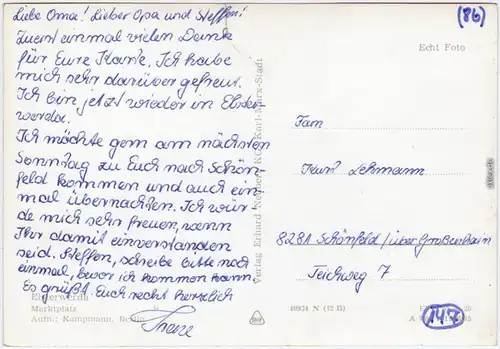 Liebe Oma! Lieber Opa und Steffen!
Zuerst einmal vielen Dank
für Eure Karte. Ich habe
mich sehr darüber gefreut.
Ich bin jetzt wieder in Elster-
werda.
Ich möchte gern am nächsten
Sonntag zu Euch nach Schön-
feld kommen und auch ein-
mal übernachten. Ich wür-
de mich sehr freuen, wenn
Ihr damit einverstanden
seid. Steffen, schreibe bitte noch
einmal, bevor ich kommen kann.
Es grüßt Euch recht herzlich
Elsterwerda
Marktplatz
Aufn.: Kampmann, Berlin
Verlag Erhard Neubert KG, Karl-Marx-Stadt
(86)
Echt Foto
Fam
Kurt Lehmann
8281 Schönfeld/über Großenhain
Teichweg 7
N (12 77)
147